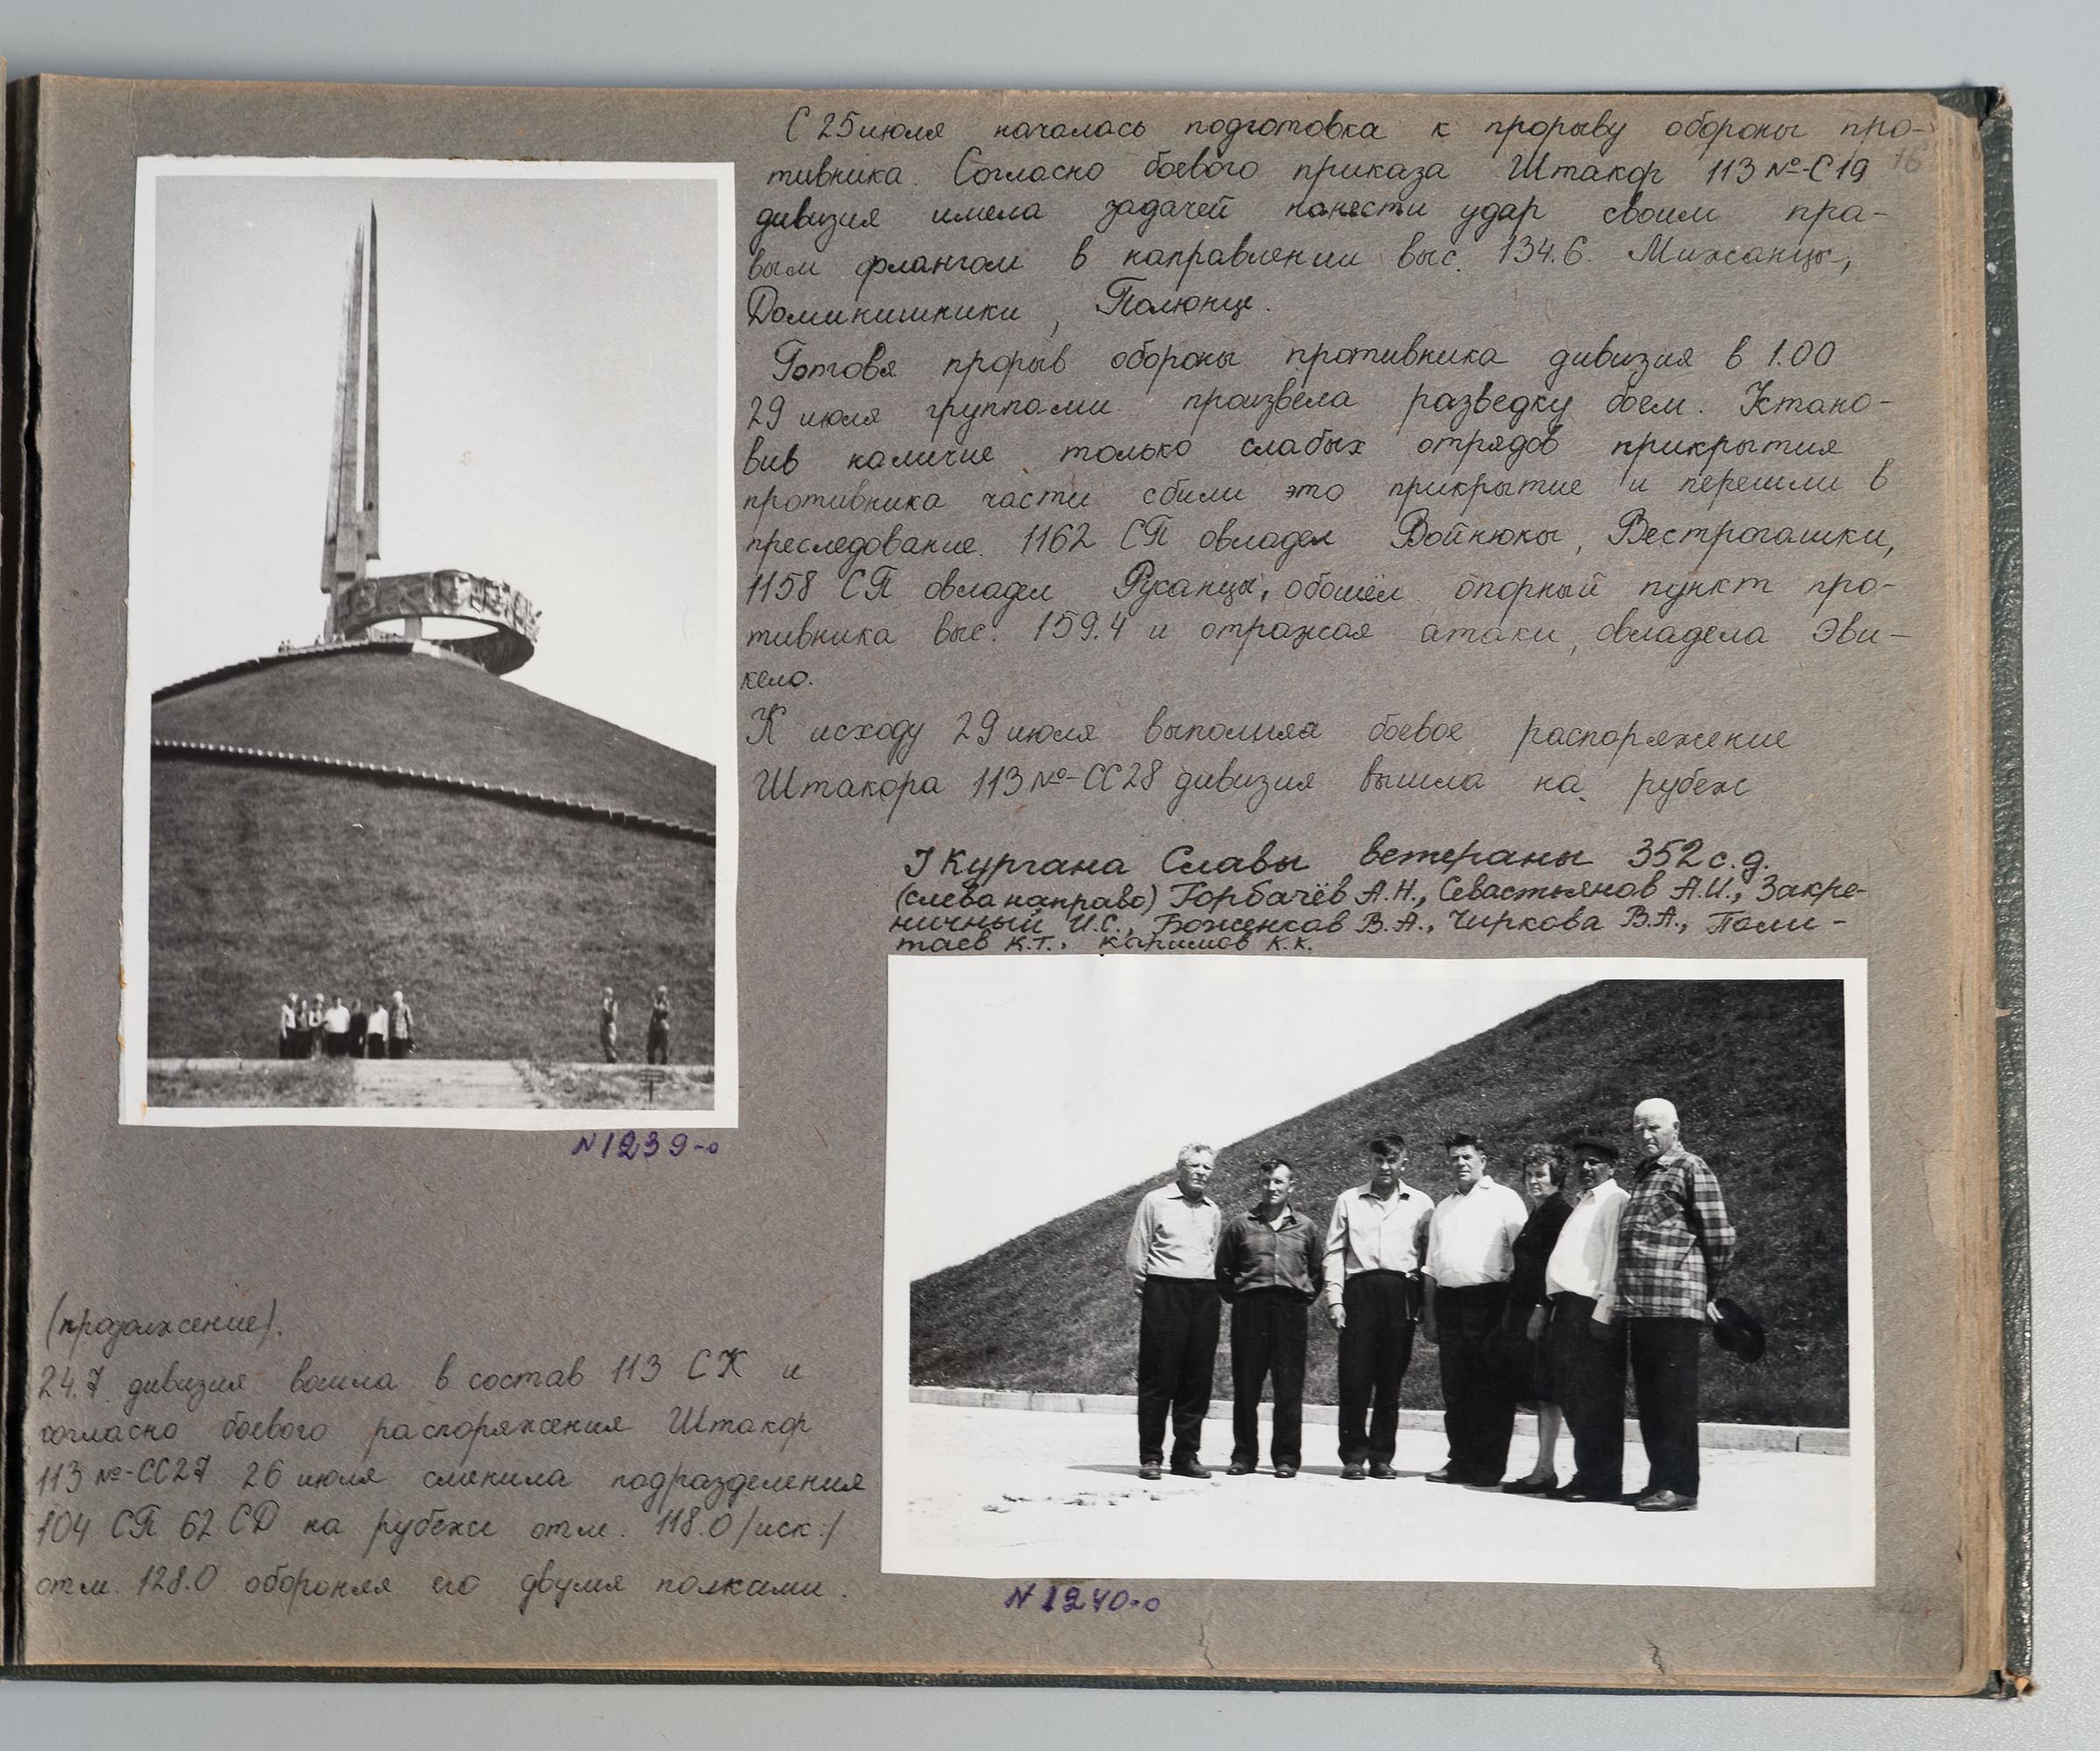 С 25 июля началась подготовка к прорыву обороны про-
тивника. Согласно боевого приказа Штакор 113 №-С19
16
дивизия имела задачей нанести удар своим пра-
вым флангом в направлении выс. 134.6. Михсанцы,
Доминишники, Полюнце.
Готовя прорыв обороны противника дивизия в 1.00
29 июля группами произвела разведку боем. Устано-
вив наличие только слабых отрядов прикрытия
противника части сбили это прикрытие и перешли в
преследование. 1162 СП овладел Войнюкы, Вестрогашки,
1158 СП овладел Русанцы, обошёл опорный пункт про-
тивника выс. 159.4 и отражая атаки, овладела Эви-
кело.
К исходу 29 июля выполняя боевое распоряжение
Штакора 113 №-СС28 дивизия вышла на рубеж
У Кургана Славы ветераны 352 с.д.
(слева направо) Горбачёв А.Н., Севастьянов А.И., Закре-
ничный И.С., Боженков В.А., Чиркова В.А., Поли-
таев К.Т., Каримов К.К.
N1239-о
(продолжение).
24.7 дивизия вошла в состав 113 СК и
согласно боевого распоряжения Штакор
113 №-СС27 26 июля сменила подразделения
104 СП 62 СД на рубеже отм. 118.0 /иск./
отм. 128.0 обороняя его двумя полками.
N1240-о